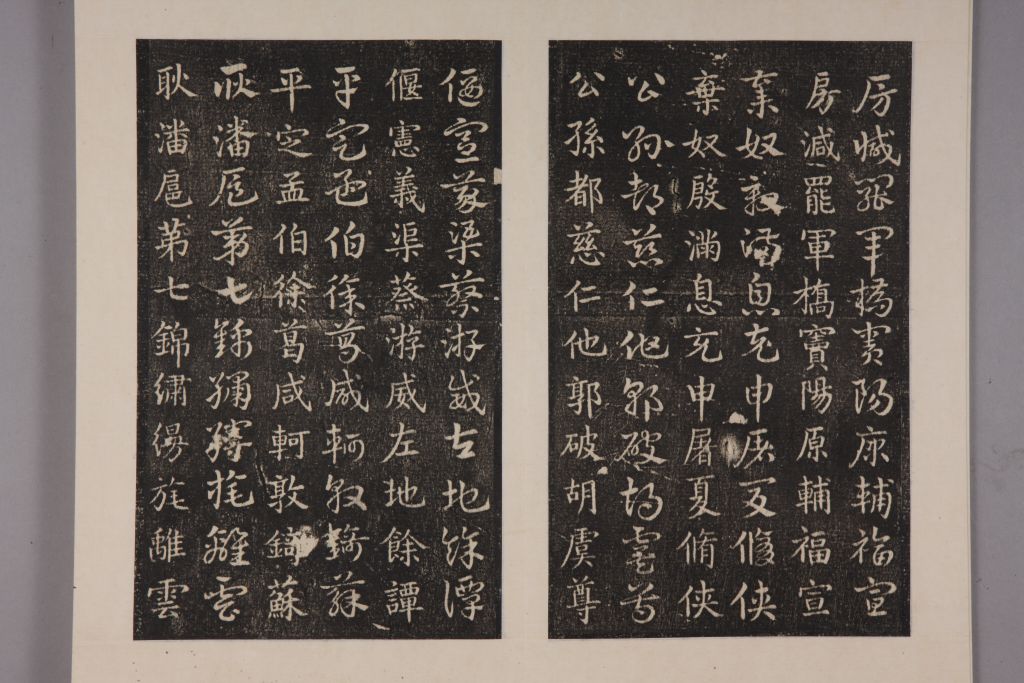 房減罷軍橋竇陽原輔福宣
房減罷軍橋竇陽原輔福宣
棄奴殷滿息充申屠夏脩俠
棄奴殷滿息充申屠夏脩俠
公孫都慈仁他郭破胡虞尊
公孫都慈仁他郭破胡虞尊
偃憲義渠蔡游威左地餘譚
偃憲義渠蔡游威左地餘譚
平定孟伯徐葛咸軻敦錡蘇
平定孟伯徐葛咸軻敦錡蘇
耿潘扈苐七錦繡縵旄離雲
耿潘扈苐七錦繡縵旄離雲